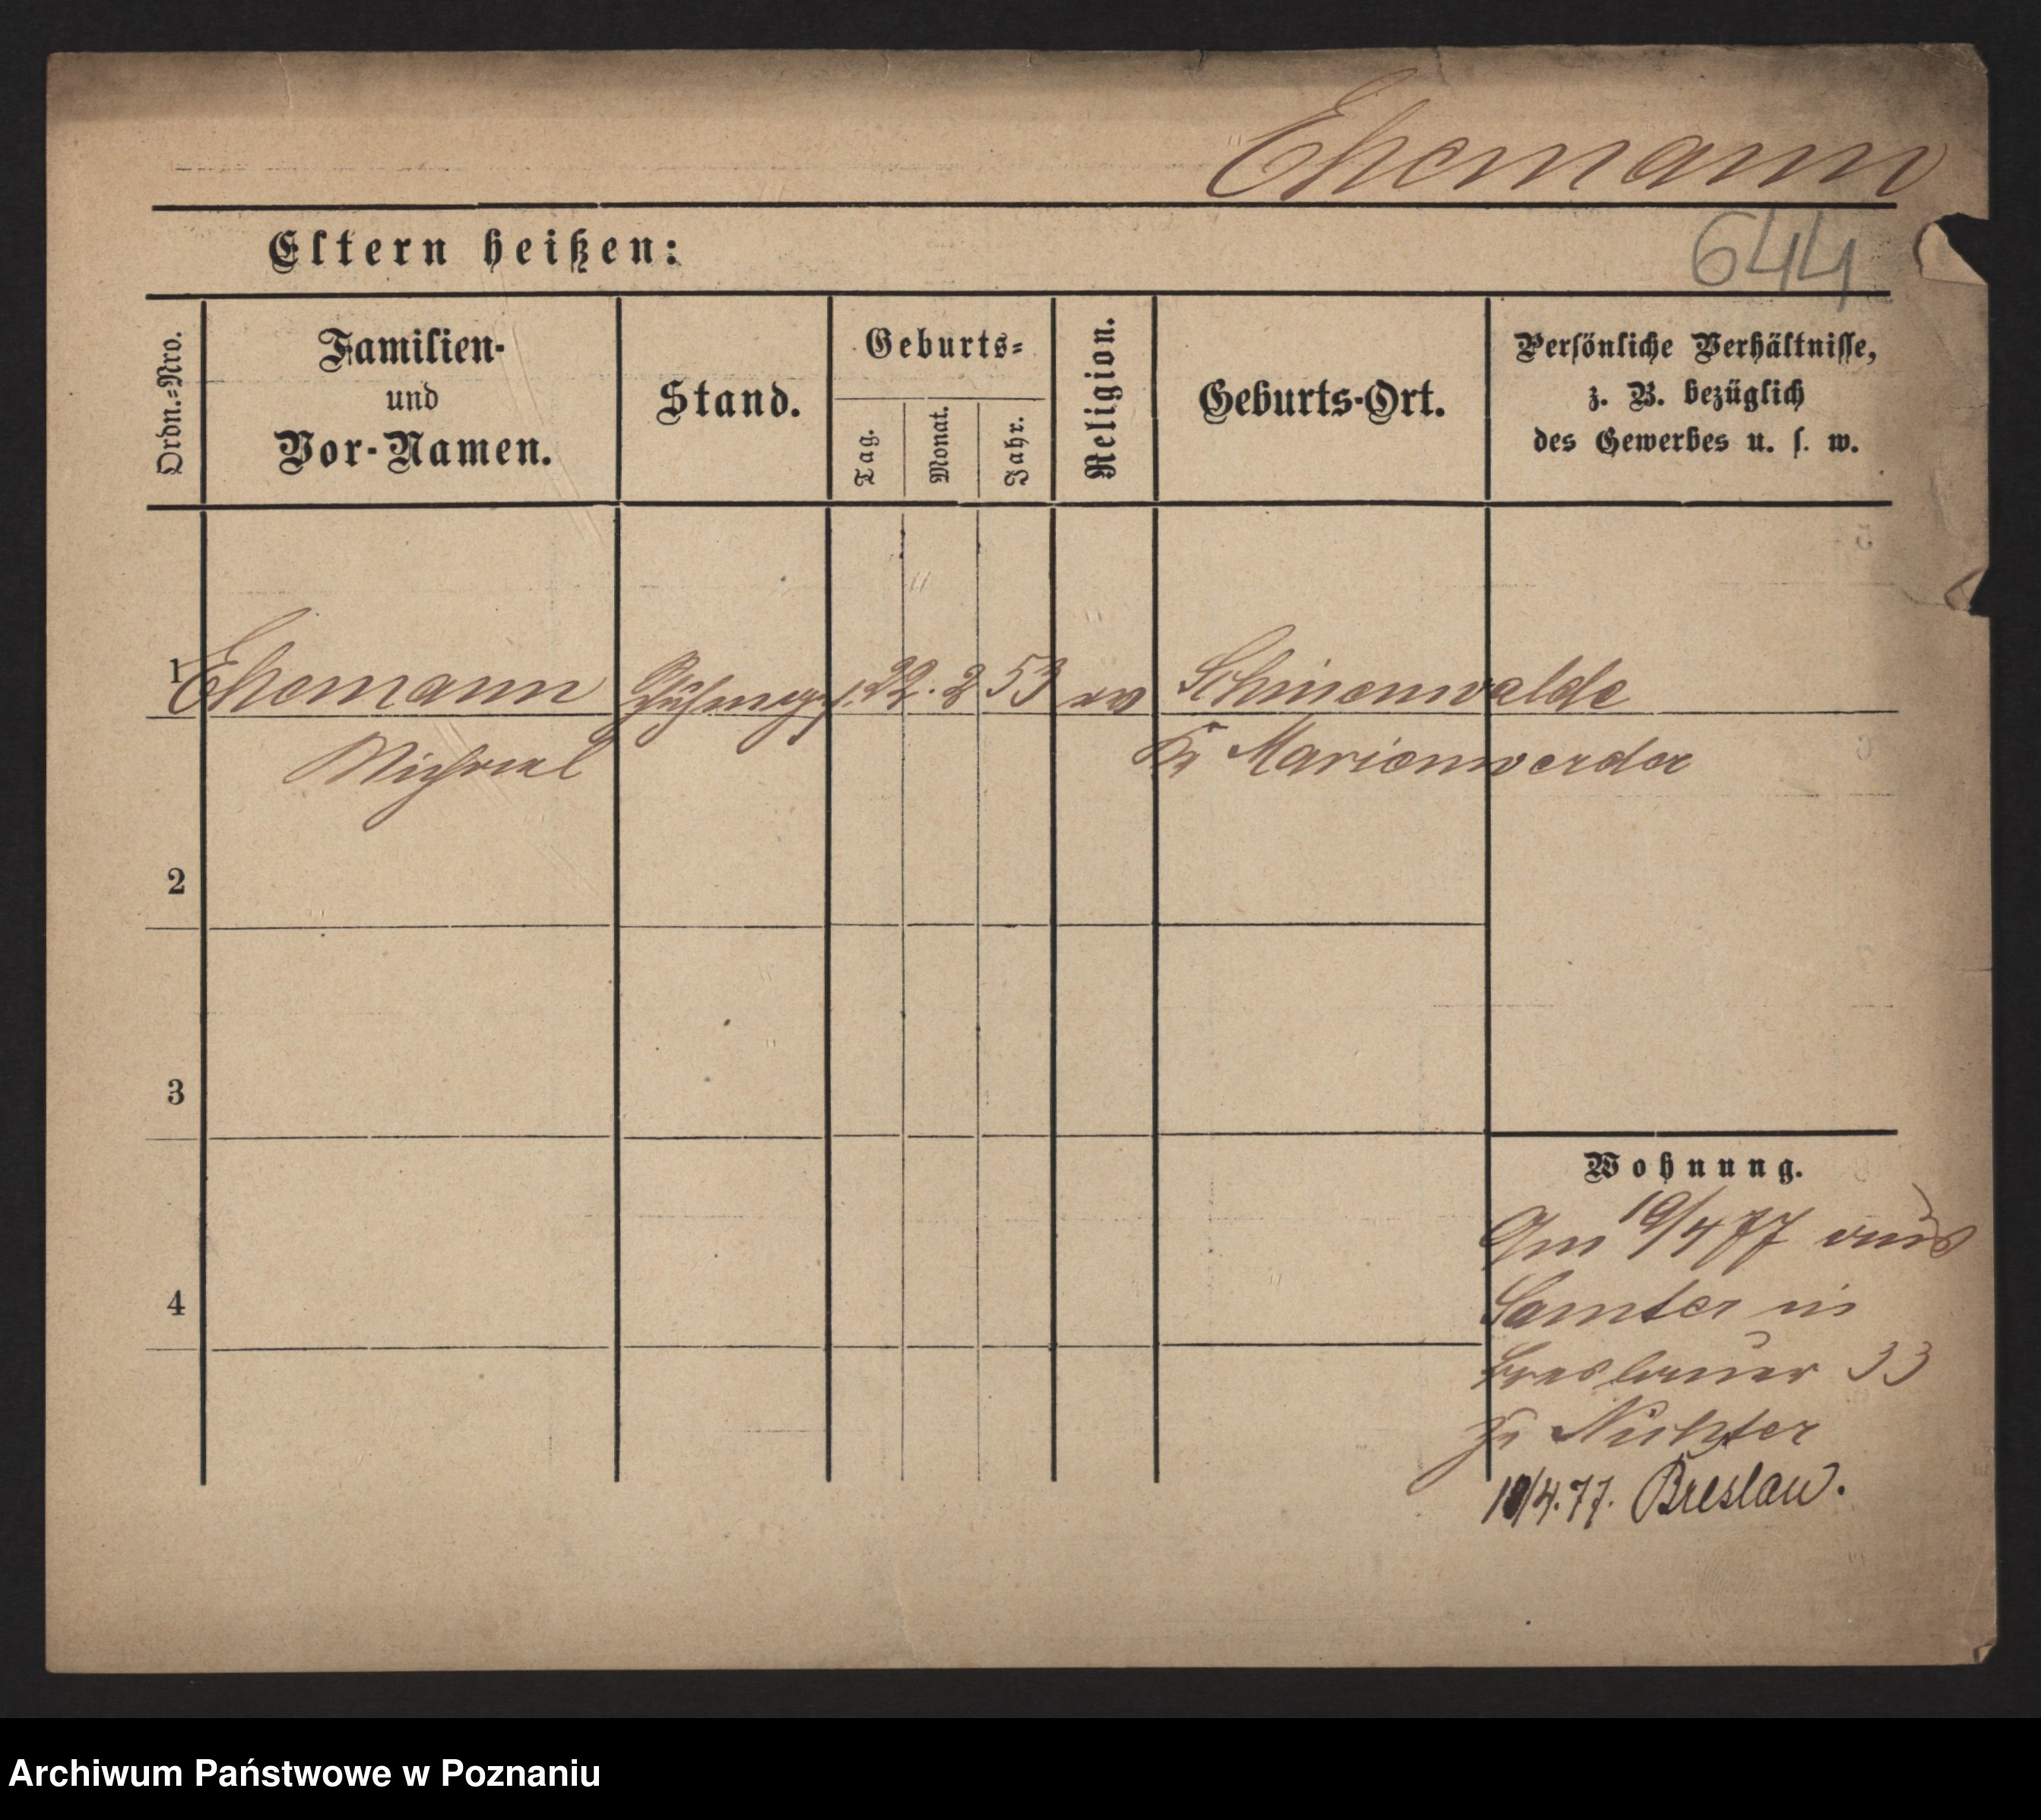 Ehemann
Eltern heißen:
644
Ordn.-Nro.
Familien-
und
Vor-Namen.
Stand.
Geburts-
Tag.
Monat.
Jahr.
Religion.
Geburts-Ort.
Persönliche Verhältnisse,
z. B. bezüglich
des Gewerbes u. s. w.
1
Ehemann
22. 2 53 ev
Schinenwalde
Michael
Kr Marienwerder
2
3
4
Wohnung.
Am 19/4 77 aus
Samter in
Breslauer 33
zu
10/4.77. Breslau.
Archiwum Państwowe w Poznaniu